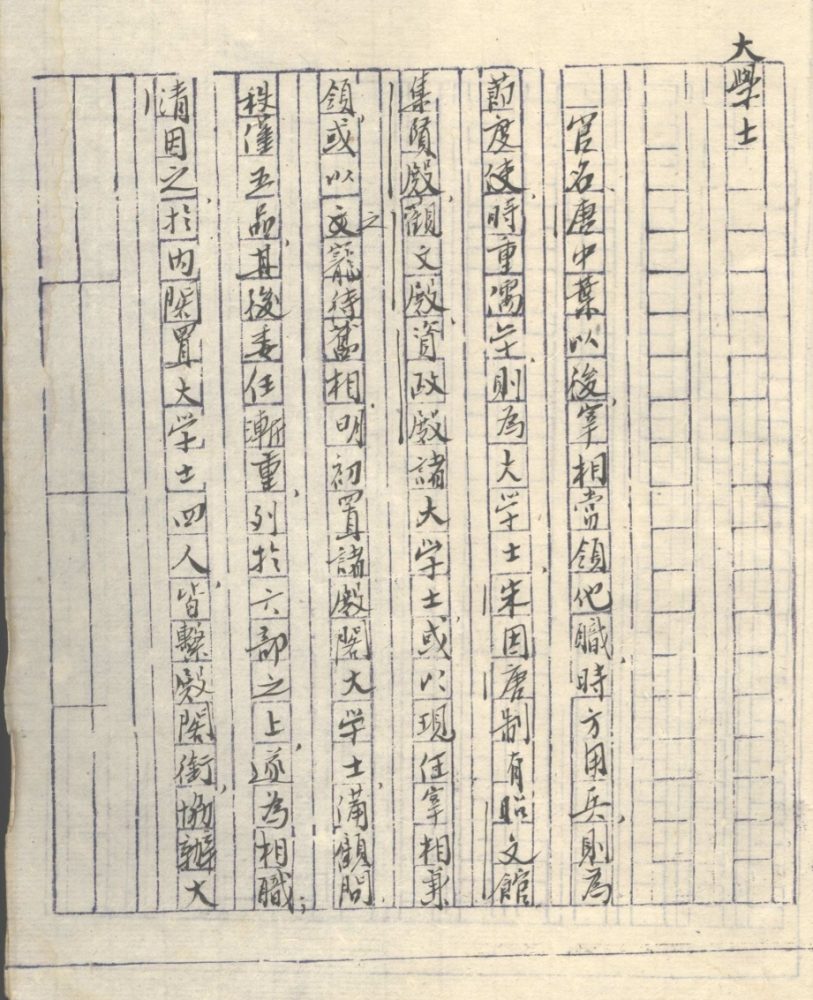 大學士
官名唐中葉以後,宰相常領他職,時方用兵,則為
節度使,時重儒学,則為大学士,宋因唐制有昭文館
集賢殿,觀文殿,資政殿諸大学士,或以現任宰相兼
領,或以之文寵待舊相,明初置諸殿閣大学士,備顧問.
秩僅五品,其後委任漸重,列於六部之上,遂為相職;
清因之,於内閣置大学士四人,皆繫殿閣銜,協辦大